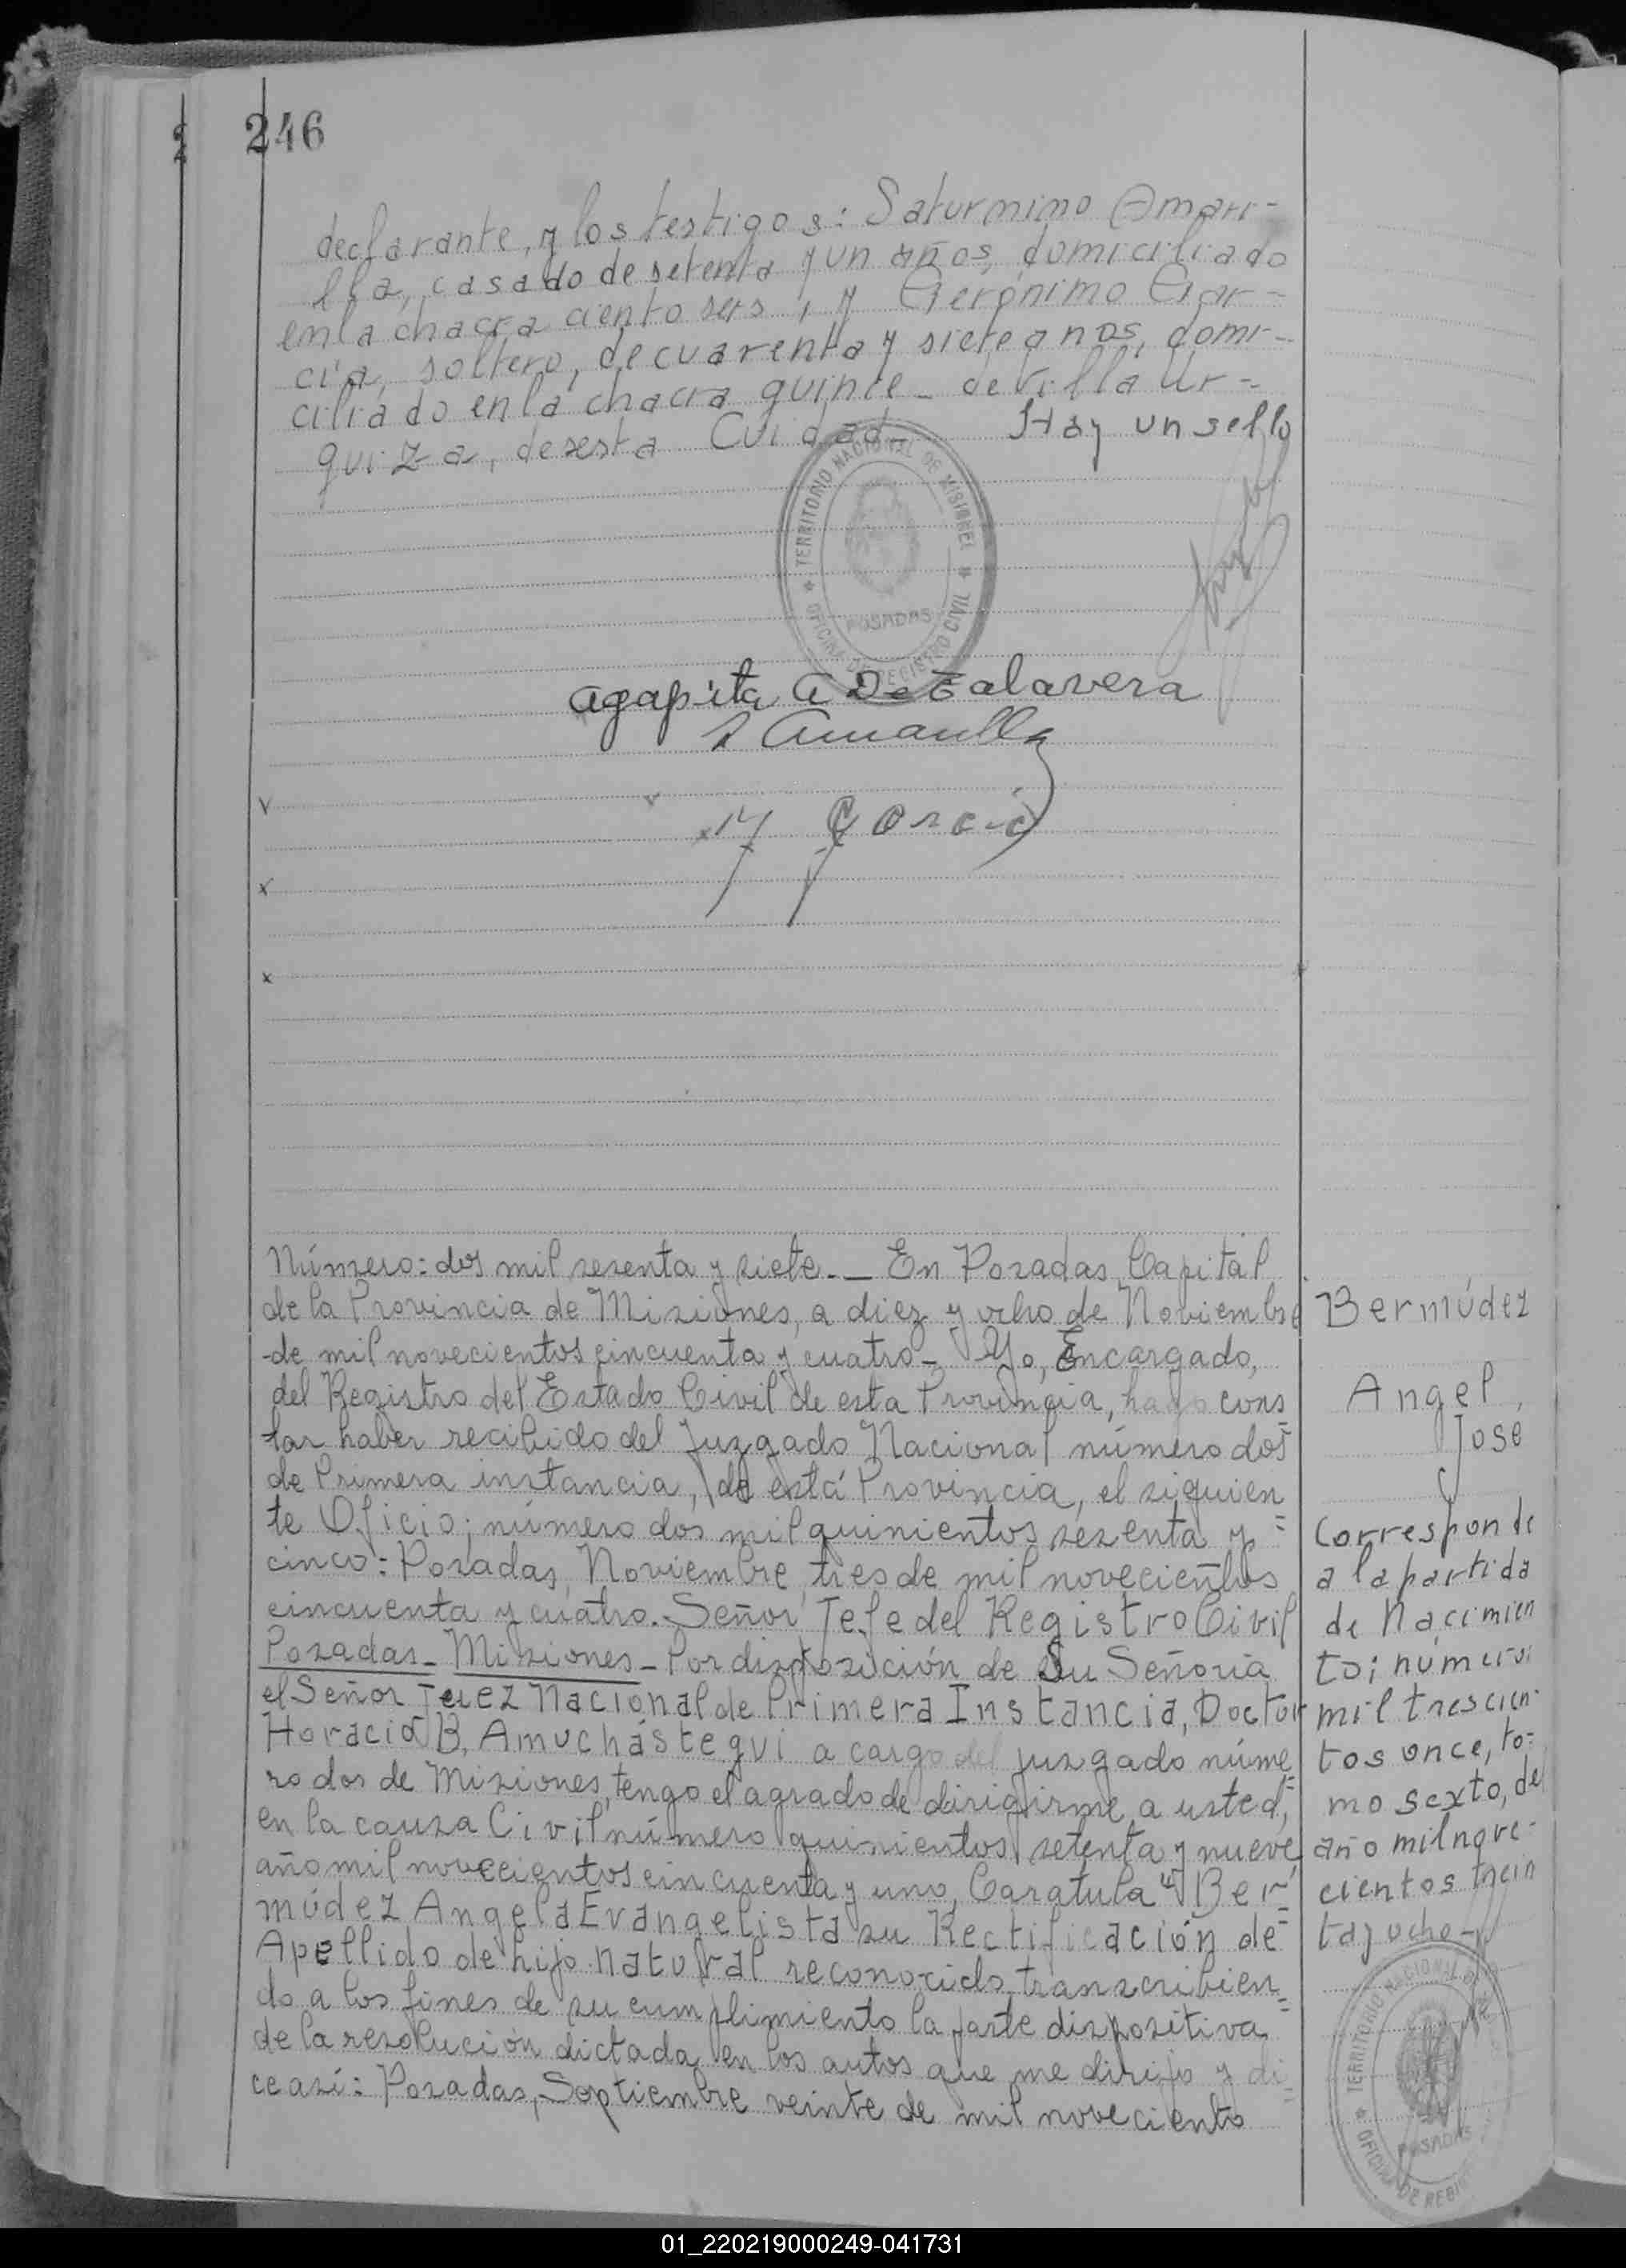 246
declarante, y los testigos: Saturnino Amari-
lla, casado de setenta y un años, domiciliado
en la chacra ciento seis, y Gerónimo Gar-
cía, soltero, de cuarenta y siete anos, domi-
ciliado en la chacra quince - de Villa Ur-
quiza, de esta Cuidad - Hay un sello
TERRITORIO NACIONAL DE MISIONES
POSADAS
OFICINA DE REGISTRO CIVIL
Agapita A De Talavera
S Amarilla
Garcia
Número: dos mil sesenta y siete. — En Posadas, Capital
de la Provincia de Misiones, a diez y ocho de Noviembre
de mil novecientos cincuenta y cuatro - Yo, Encargado,
del Registro del Estado Civil de esta Provincia, hago cons=
tar haber recibido del Juzgado Nacional número dos
de Primera instancia, de está Provincia, el siguien
te Oficio; número dos mil quinientos sesenta y =
cinco: Posadas, Noviembre, tres de mil novecientos
cincuenta y cuatro. Señor Jefe del Registro Civil
Posadas - Misiones - Por disposición de Su Señoria
el Señor Juez Nacional de Primera Instancia, Doctor
Horacio B. Amuchástegui a cargo del juzgado núme=
ro dos de Misiones, tengo el agrado de dirigirme a usted,
en la causa Civil número quinientos setenta y nueve,
año mil novecientos cincuenta y uno, Caratula "Ber=
múdez Angela Evangelista su Rectificación de=
Apellido de hijo natural reconocido, transcribien=
do a los fines de su cumplimiento la parte dispositiva
de la resolución dictada en los autos que me dirijo y di=
ce así: Posadas, Septiembre veinte de mil noveciento
Bermúdez
Angel,
José
Corresponde
a la partida
de Nacimien
to; número
mil trescien-
tos once, to=
mo sexto, del
año mil nove-
cientos trein
ta y ocho -
TERRITORIO NACIONAL DE
POSADAS
OFICINA DE REGI
01_220219000249-041731